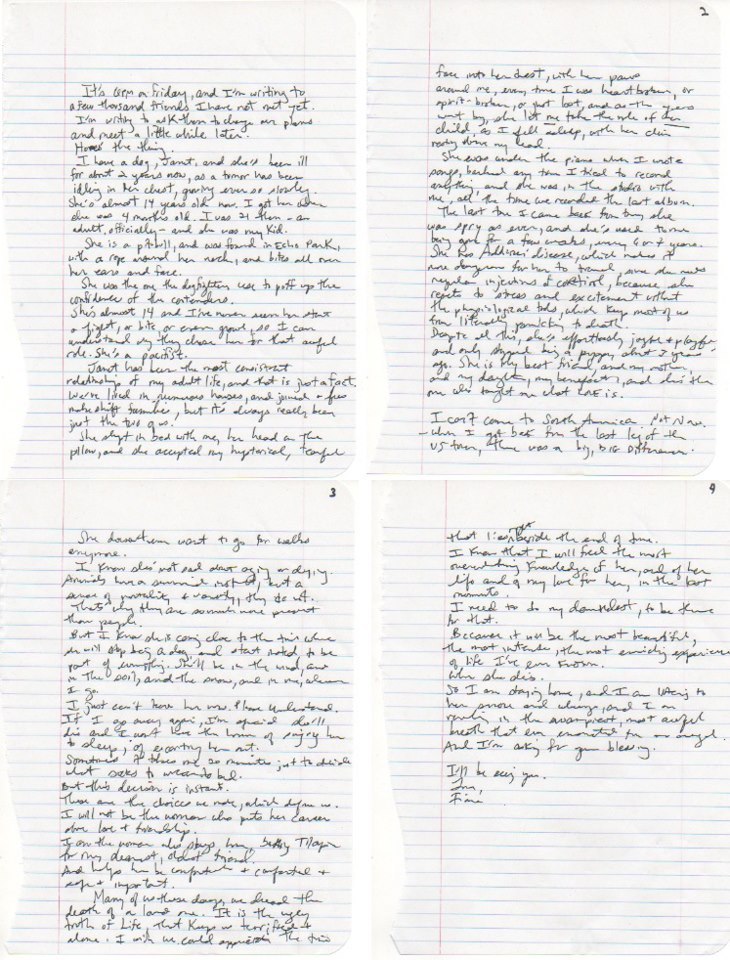 It's 6pm on Friday, and I'm writing to
a few thousand friends I have not met yet.
I'm writing to ask them to change our plans
and meet a little while later.
Here's the thing.
I have a dog, Janet, and she's been ill
for about 2 years now, as a tumor has been
idling in her chest, growing ever so slowly.
She's almost 14 years old now. I got her when
she was 4 months old. I was 21 then - an
adult, officially - and she was my kid.
She is a pitbull, and was found in Echo Park,
with a rope around her neck, and bites all over
her ears and face.
She was the one the dogfighters use to puff up the
confidence of the contenders.
She's almost 14 and I've never seen her start
a fight, or bite, or even growl, so I can
understand why they chose her for that awful
role. She's a pacifist.
Janet has been the most consistent
relationship of my adult life, and that is just a fact.
We've lived in numerous houses, and joined a few
makeshift families, but it's always really been
just the two of us.
She slept in bed with me, her head on the
pillow, and she accepted my hysterical, tearful
2
face into her chest, with her paws
around me, every time I was heartbroken, or
spirit-broken, or just lost, and as the years
went by, she let me take the role of her
child, as I fell asleep, with her chin
resting above my head.
She was under the piano when I wrote
songs, barked any time I tried to record
anything, and she was in the studio with
me, all the time we recorded the last album.
The last time I came back from tour, she
was spry as ever, and she's used to me
being gone for a few weeks, every 6 or 7 years.
She has Addison's disease, which makes it
more dangerous for her to travel, since she needs
regular injections of cortisol, because she
reacts to stress and excitement without
the physiological tools which keep most of us
from literally panicking to death.
Despite all this, she's effortlessly joyful & playful,
and only stopped being a puppy about 3 years
ago. She is my best friend, and my mother,
and my daughter, my benefactor, and she's the
one who taught me what love is.
I can't come to South America. Not Now.
- When I got back from the last leg of the
US tour, there was a big, BIG Difference.
3
She doesn't even want to go for walks
anymore.
I know she's not sad about aging or dying.
Animals have a survival instinct, but a
sense of mortality & vanity, they do not.
That's why they are so much more present
than people.
But I know she is coming close to the time where
she will stop being a dog and start instead to be
part of everything. She'll be in the wind, and
in the soil, and the snow, and in me, wherever
I go.
I just can't leave her now. Please understand.
If I go away again, I'm afraid she'll
die and I won't have the honor of singing her
to sleep, of escorting her out.
Sometimes it takes me 20 minutes just to decide
what socks to wear to bed.
But this decision is instant.
These are the choices we make, which define us.
I will not be the woman who puts her career
above love & friendship.
I am the woman who stays home, baking Tilapia
for my dearest, oldest friend.
And helps her be comfortable & comforted &
safe & important.
Many of us these days, we dread the
death of a loved one. It is the ugly
truth of Life, that keeps us terrified &
alone. I wish we could appreciate the time
4
that lies right beside the end of time.
I know that I will feel the most
overwhelming knowledge of her, and of her
life and of my love for her, in the last
moments.
I need to do my damnedest, to be there
for that.
Because it will be the most beautiful,
the most intense, the most enriching experience
of life I've ever known.
When she dies.
So I am staying home, and I am listening to
her snore and wheeze, and I am
reveling in the swampiest, most awful
breath that ever emanated from an angel.
And I'm asking for your blessing.
I'll be seeing you.
Love,
Fiona